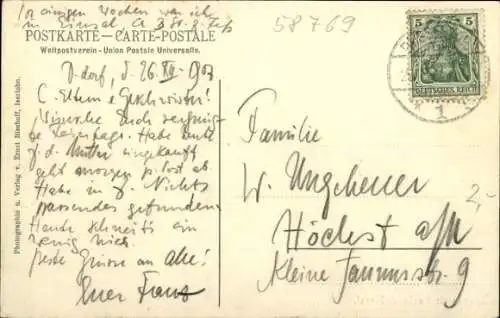 Vor einigen Wochen war ich
in
POSTKARTE — CARTE-POSTALE
Weltpostverein - Union Postale Universelle.
58769
5 5
DEUTSCHES REICH
1
D-dorf, d. 26. XII. 1907
L. Eltern & Geschwister!
Wünsche Euch vergnügte
Feiertage. Habe heute
f. d. Mutter eingekauft
geht morgen p. Post ab.
Habe in Nichts
passendes gefunden
Heute schneit's ein
wenig hier.
Beste Grüsse an alle!
Euer Franz
Familie
W. Ungeheuer
Höchst a/M
Kleine Taunusstr. 9
2,-
Photographie u. Verlag v. Ernst Bischoff, Iserlohn.